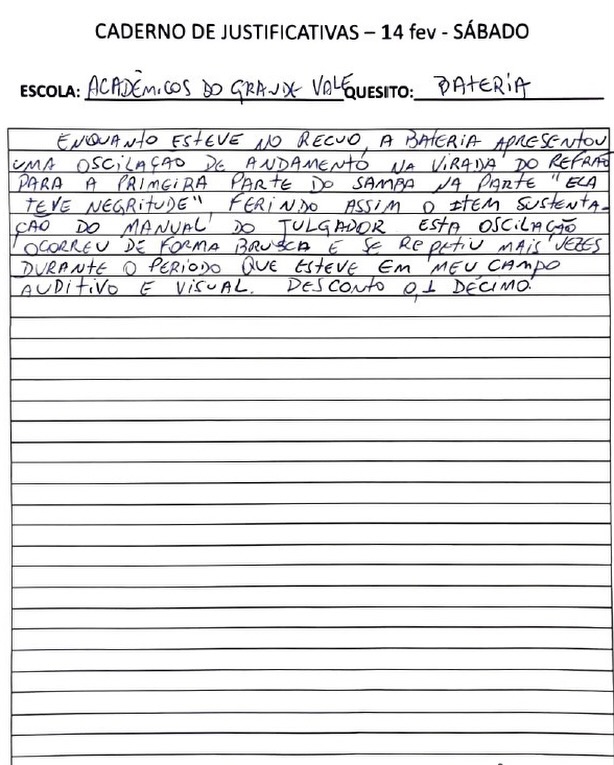 CADERNO DE JUSTIFICATIVAS – 14 fev - SÁBADO
ESCOLA: ACADÊMICOS DO GRANDE VALE QUESITO: BATERIA
ENQUANTO ESTEVE NO RECUO, A BATERIA APRESENTOU
UMA OSCILAÇÃO DE ANDAMENTO NA VIRADA DO REFRÃO
PARA A PRIMEIRA PARTE DO SAMBA NA PARTE "ELA
TEVE NEGRITUDE" FERINDO ASSIM O ITEM SUSTENTA-
ÇÃO DO MANUAL DO JULGADOR ESTA OSCILAÇÃO
OCORREU DE FORMA BRUSCA E SE REPETIU MAIS VEZES
DURANTE O PERÍODO QUE ESTEVE EM MEU CAMPO
AUDITIVO E VISUAL. DESCONTO 0,1 DÉCIMO.